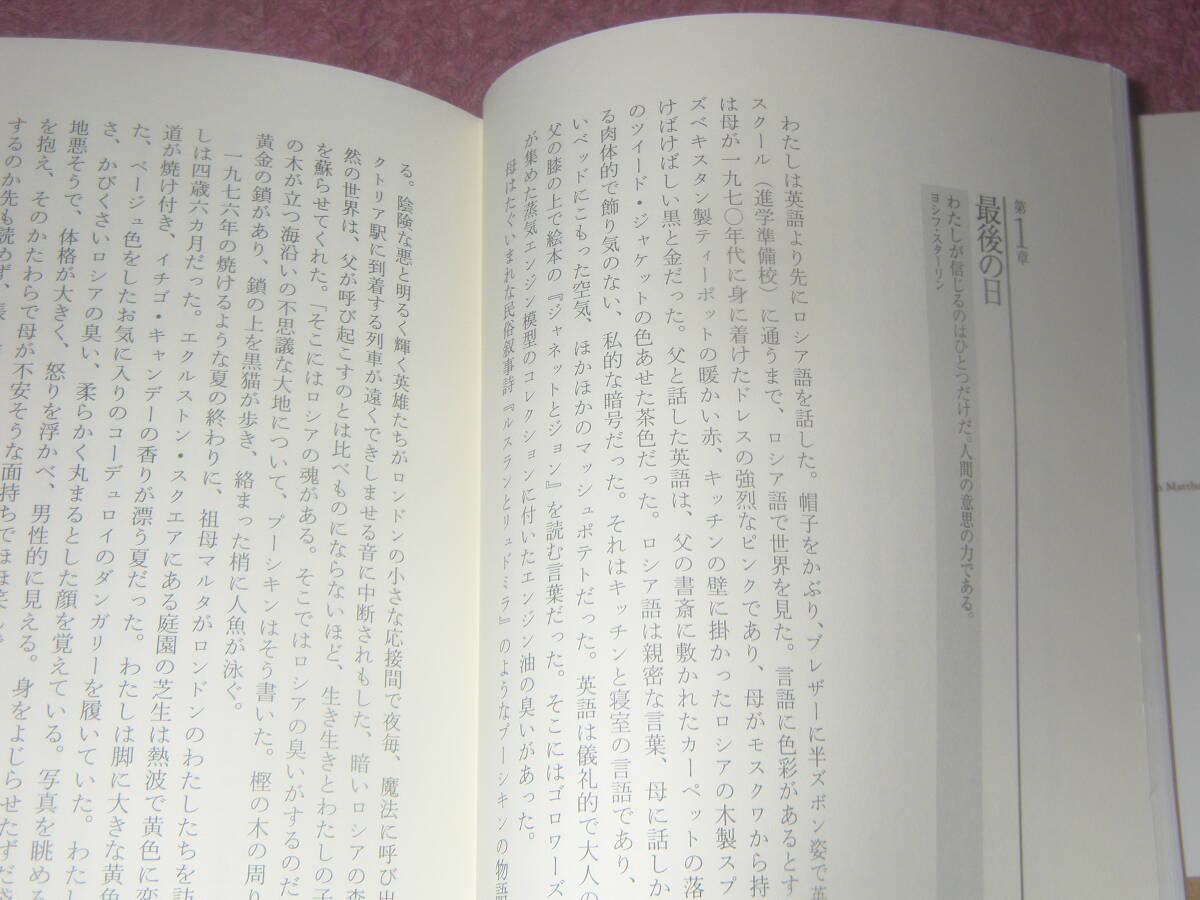 第1章
最後の日
わたしが信じるのはひとつだけだ。人間の意思の力である。
ヨシフ・スターリン
わたしは英語より先にロシア語を話した。帽子をかぶり、ブレザーに半ズボン姿で英
スクール（進学準備校）に通うまで、ロシア語で世界を見た。言語に色彩があるとす
は母が一九七〇年代に身に着けたドレスの強烈なピンクであり、母がモスクワから持
ズベキスタン製ティーポットの暖かい赤、キッチンの壁に掛かったロシアの木製スプ
けばけばしい黒と金だった。父と話した英語は、父の書斎に敷かれたカーペットの落
のツイード・ジャケットの色あせた茶色だった。ロシア語は親密な言葉、母に話しか
る肉体的で飾り気のない、私的な暗号だった。それはキッチンと寝室の言語であり、
いベッドにこもった空気、ほかほかのマッシュポテトだった。英語は儀礼的で大人の
父の膝の上で絵本の『ジャネットとジョン』を読む言葉だった。そこにはゴロワーズ
が集めた蒸気エンジン模型のコレクションに付いたエンジン油の臭いがあった。
母はたぐいまれな民俗叙事詩『ルスランとリュドミラ』のようなプーシキンの物語
る。陰険な悪と明るく輝く英雄たちがロンドンの小さな応接間で夜毎、魔法に呼び出
クトリア駅に到着する列車が遠くできしませる音に中断されもした、暗いロシアの森
然の世界は、父が呼び起こすのとは比べものにならないほど、生き生きとわたしの子
を蘇らせてくれた。「そこにはロシアの魂がある。そこではロシアの臭いがするのだ
の木が立つ海沿いの不思議な大地について、プーシキンはそう書いた。樫の木の周り
黄金の鎖があり、鎖の上を黒猫が歩き、絡まった梢に人魚が泳ぐ。
一九七六年の焼けるような夏の終わりに、祖母マルタがロンドンのわたしたちを訪
しは四歳六カ月だった。エクルストン・スクエアにある庭園の芝生は熱波で黄色に変
道が焼け付き、イチゴ・キャンデーの香りが漂う夏だった。わたしは脚に大きな黄色
た、ベージュ色をしたお気に入りのコーデュロイのダンガリーを履いていた。わたし
さ、かびくさいロシアの臭い、柔らかく丸まるとした顔を覚えている。写真を眺める
地悪そうで、体格が大きく、怒りを浮かべ、男性的に見える。身をよじらせたずだ袋
を抱え、そのかたわらで母が不安そうな面持ちでほほ笑んで
するのか先も読めず、